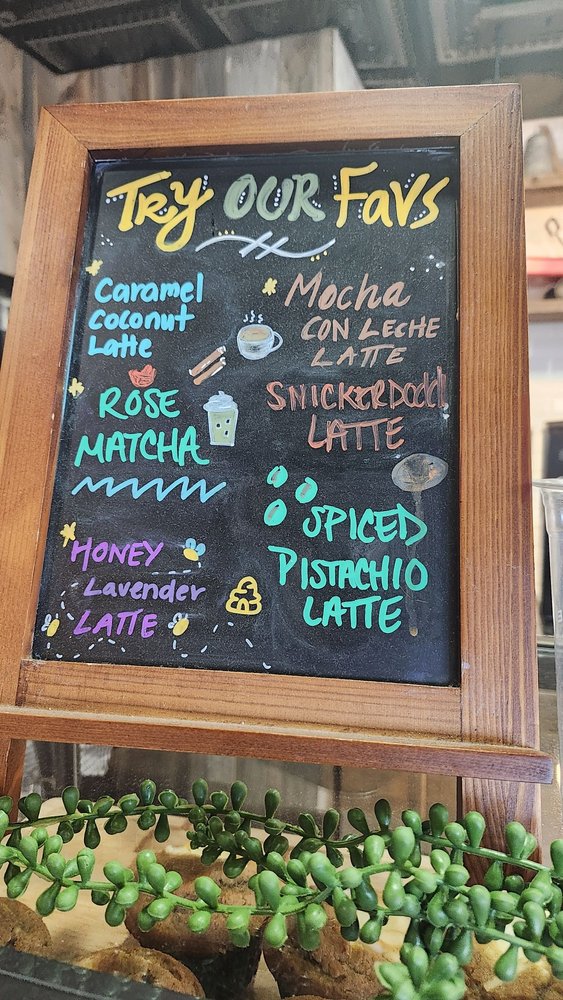 Try OUR Favs
Caramel
Coconut
Latte
Mocha
CON LECHE
LATTE
ROSE
MATCHA
SNICKERDoodl
LATTE
HONEY
Lavender
LATTE
SPICED
PISTACHIO
LATTE